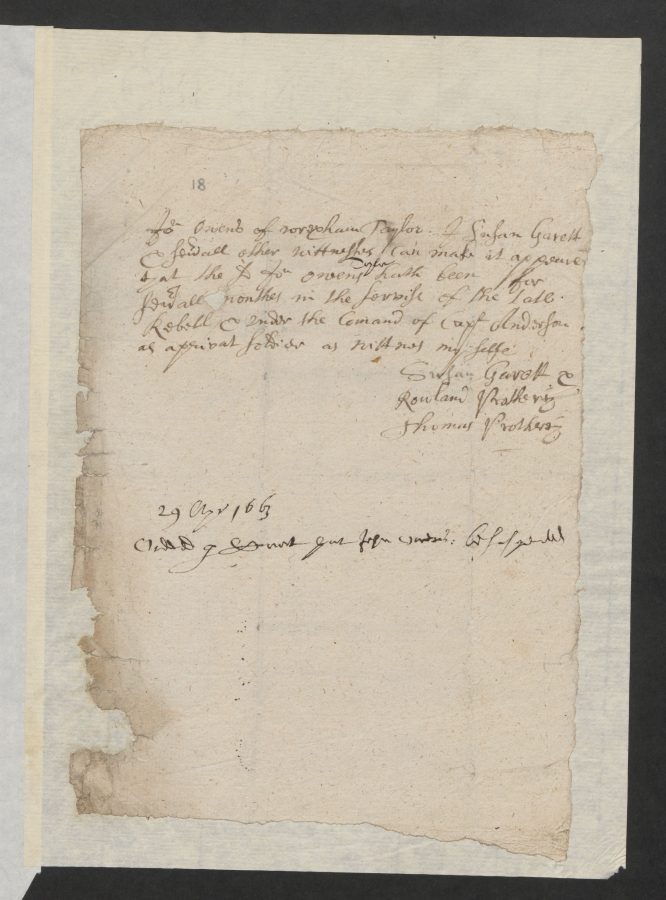 18
Jo: Owens of worexham Taylor. I Susan Gavett
& sevall other wittnesses Can make it appeare
that the sd Jo: Owens Tayler hath been for
sevall monthes in the servise of the late
Rebell & under the Comand of Capt Anderson
as a privat soldier as wittnes my selfe
Susan Gavett &
Rowland Prothery
Thomas Prothery
29 Apr 1663
Ordered John Owens: be suspended